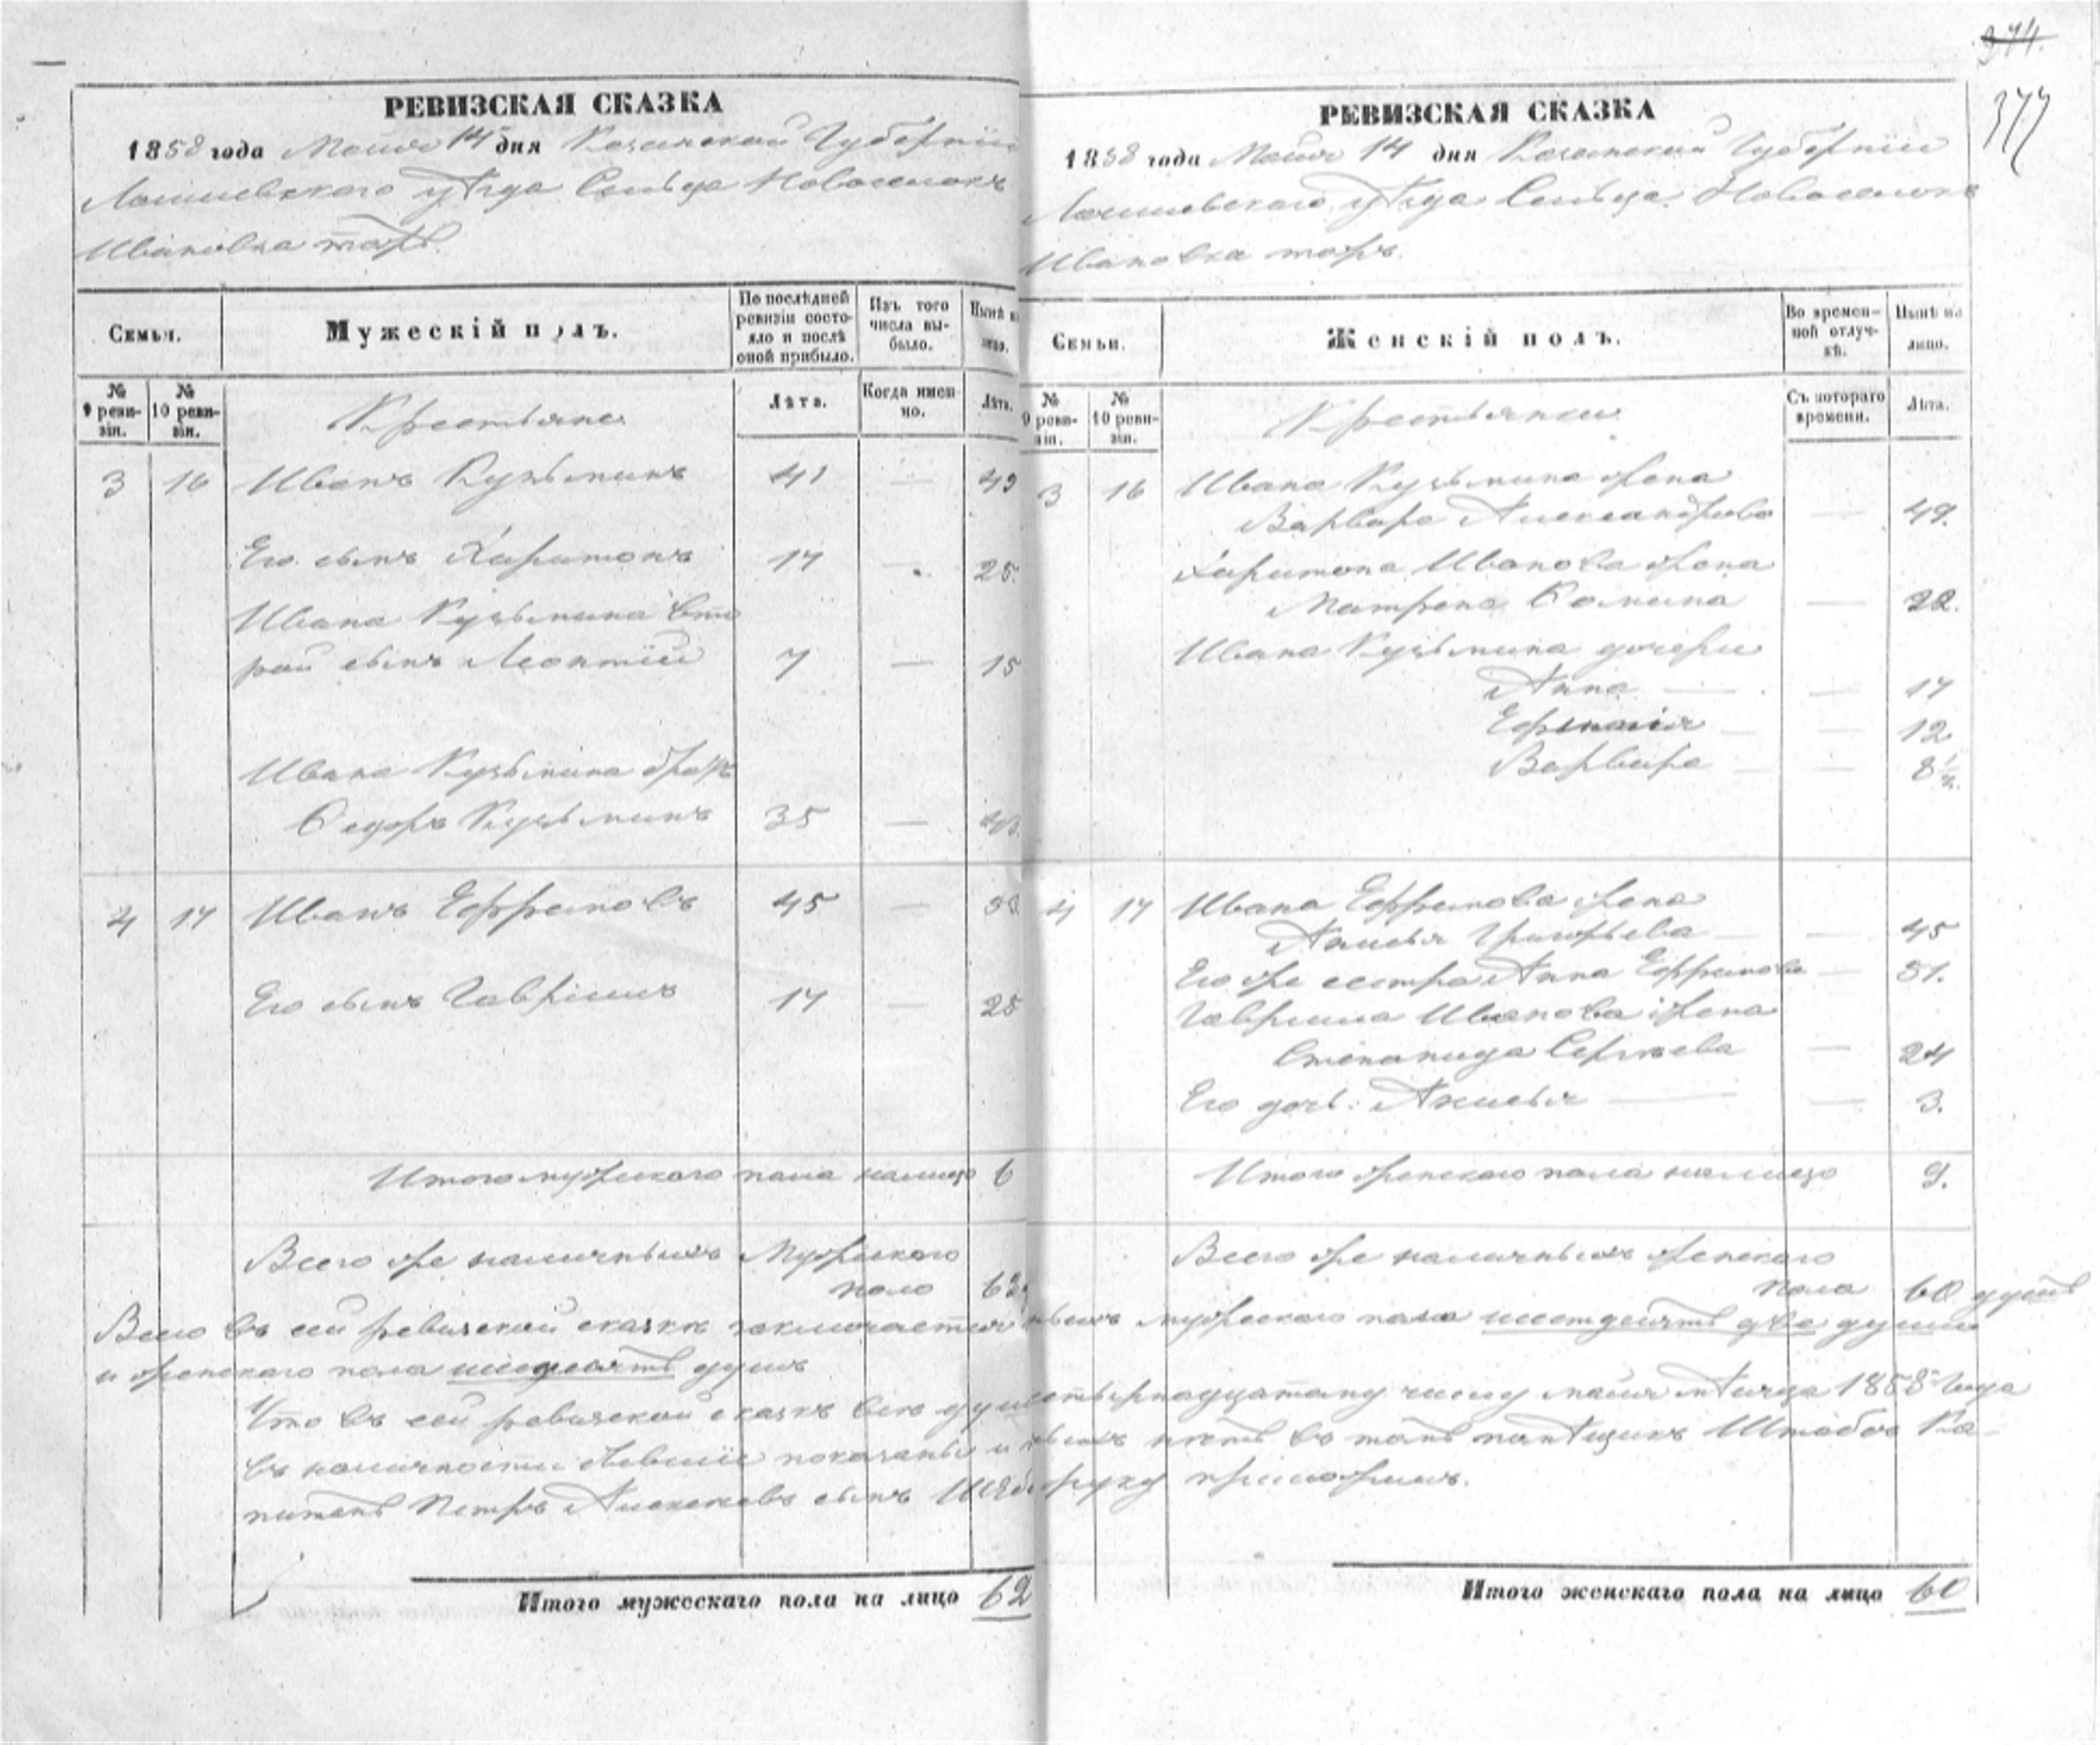 374.
377
РЕВИЗСКАЯ СКАЗКА
1858 года Маія 14 дня Казанской Губерніи
Лаишевскаго уѣзда Сельца Новоселокъ
Ивановка тожъ
Семьи.
Мужескій полъ.
По послѣдней ревизіи состояло и послѣ оной прибыло.
Изъ того числа выбыло.
Нынѣ на лицо.
№ 9 ревизіи.
№ 10 ревизіи.
Крестьяне
Лѣта.
Когда именно.
Лѣта.
3 16 Иванъ Кузьминъ 41 — 49
Его сынъ Харитонъ 17 — 25.
Ивана Кузьмина вто
рой сынъ Леонтій 7 — 15
Ивана Кузьмина братъ
Федоръ Кузьминъ 35 — 43.
4 17 Иванъ Ефремовъ 45 — 53.
Его сынъ Гаврилъ 17 — 25
Итого мужескаго пола налицо 6
Всего же наличныхъ Мужескаго
пола 62
РЕВИЗСКАЯ СКАЗКА
1858 года Маія 14 дня Казанской Губерніи
Лаишевскаго уѣзда Сельца Новоселокъ
Ивановка тожъ.
Семьи.
Женскій полъ.
Во временной отлучкѣ.
Нынѣ на лицо.
№ 9 ревизіи.
№ 10 ревизіи.
Крестьянки
Съ котораго времени.
Лѣта.
3 16 Ивана Кузьмина жена
Варвара Александрова — 49.
Харитона Иванова жена
Матрена Фомина — 22.
Ивана Кузьмина дочери
Анна — — 17
— — 12
Варвара — — 8½.
4 17 Ивана Ефремова жена
Аксинья Григорьева — — 45
Его же сестра Анна Ефремова — 51.
Гаврила Иванова жена
Степанида Сергѣева — 24
Его дочь: Аксинья — — 3.
Итого женскаго пола налицо 9.
Всего же наличныхъ женскаго
пола 60 душъ
Всего въ сей ревизской сказкѣ заключается мужескаго пола шестдесятъ две души
и женскаго пола шесдесятъ душъ
Что въ сей ревизской сказкѣ всѣ души четырнадцатому числу маія мѣсяца 1858 года
въ наличности бывшіе показаны и нѣтъ въ томъ помѣщикъ Штабсъ Ка-
питанъ Петръ Алексеевъ сынъ руку приложилъ.
Итого мужескаго пола на лицо 62
Итого женскаго пола на лицо 60